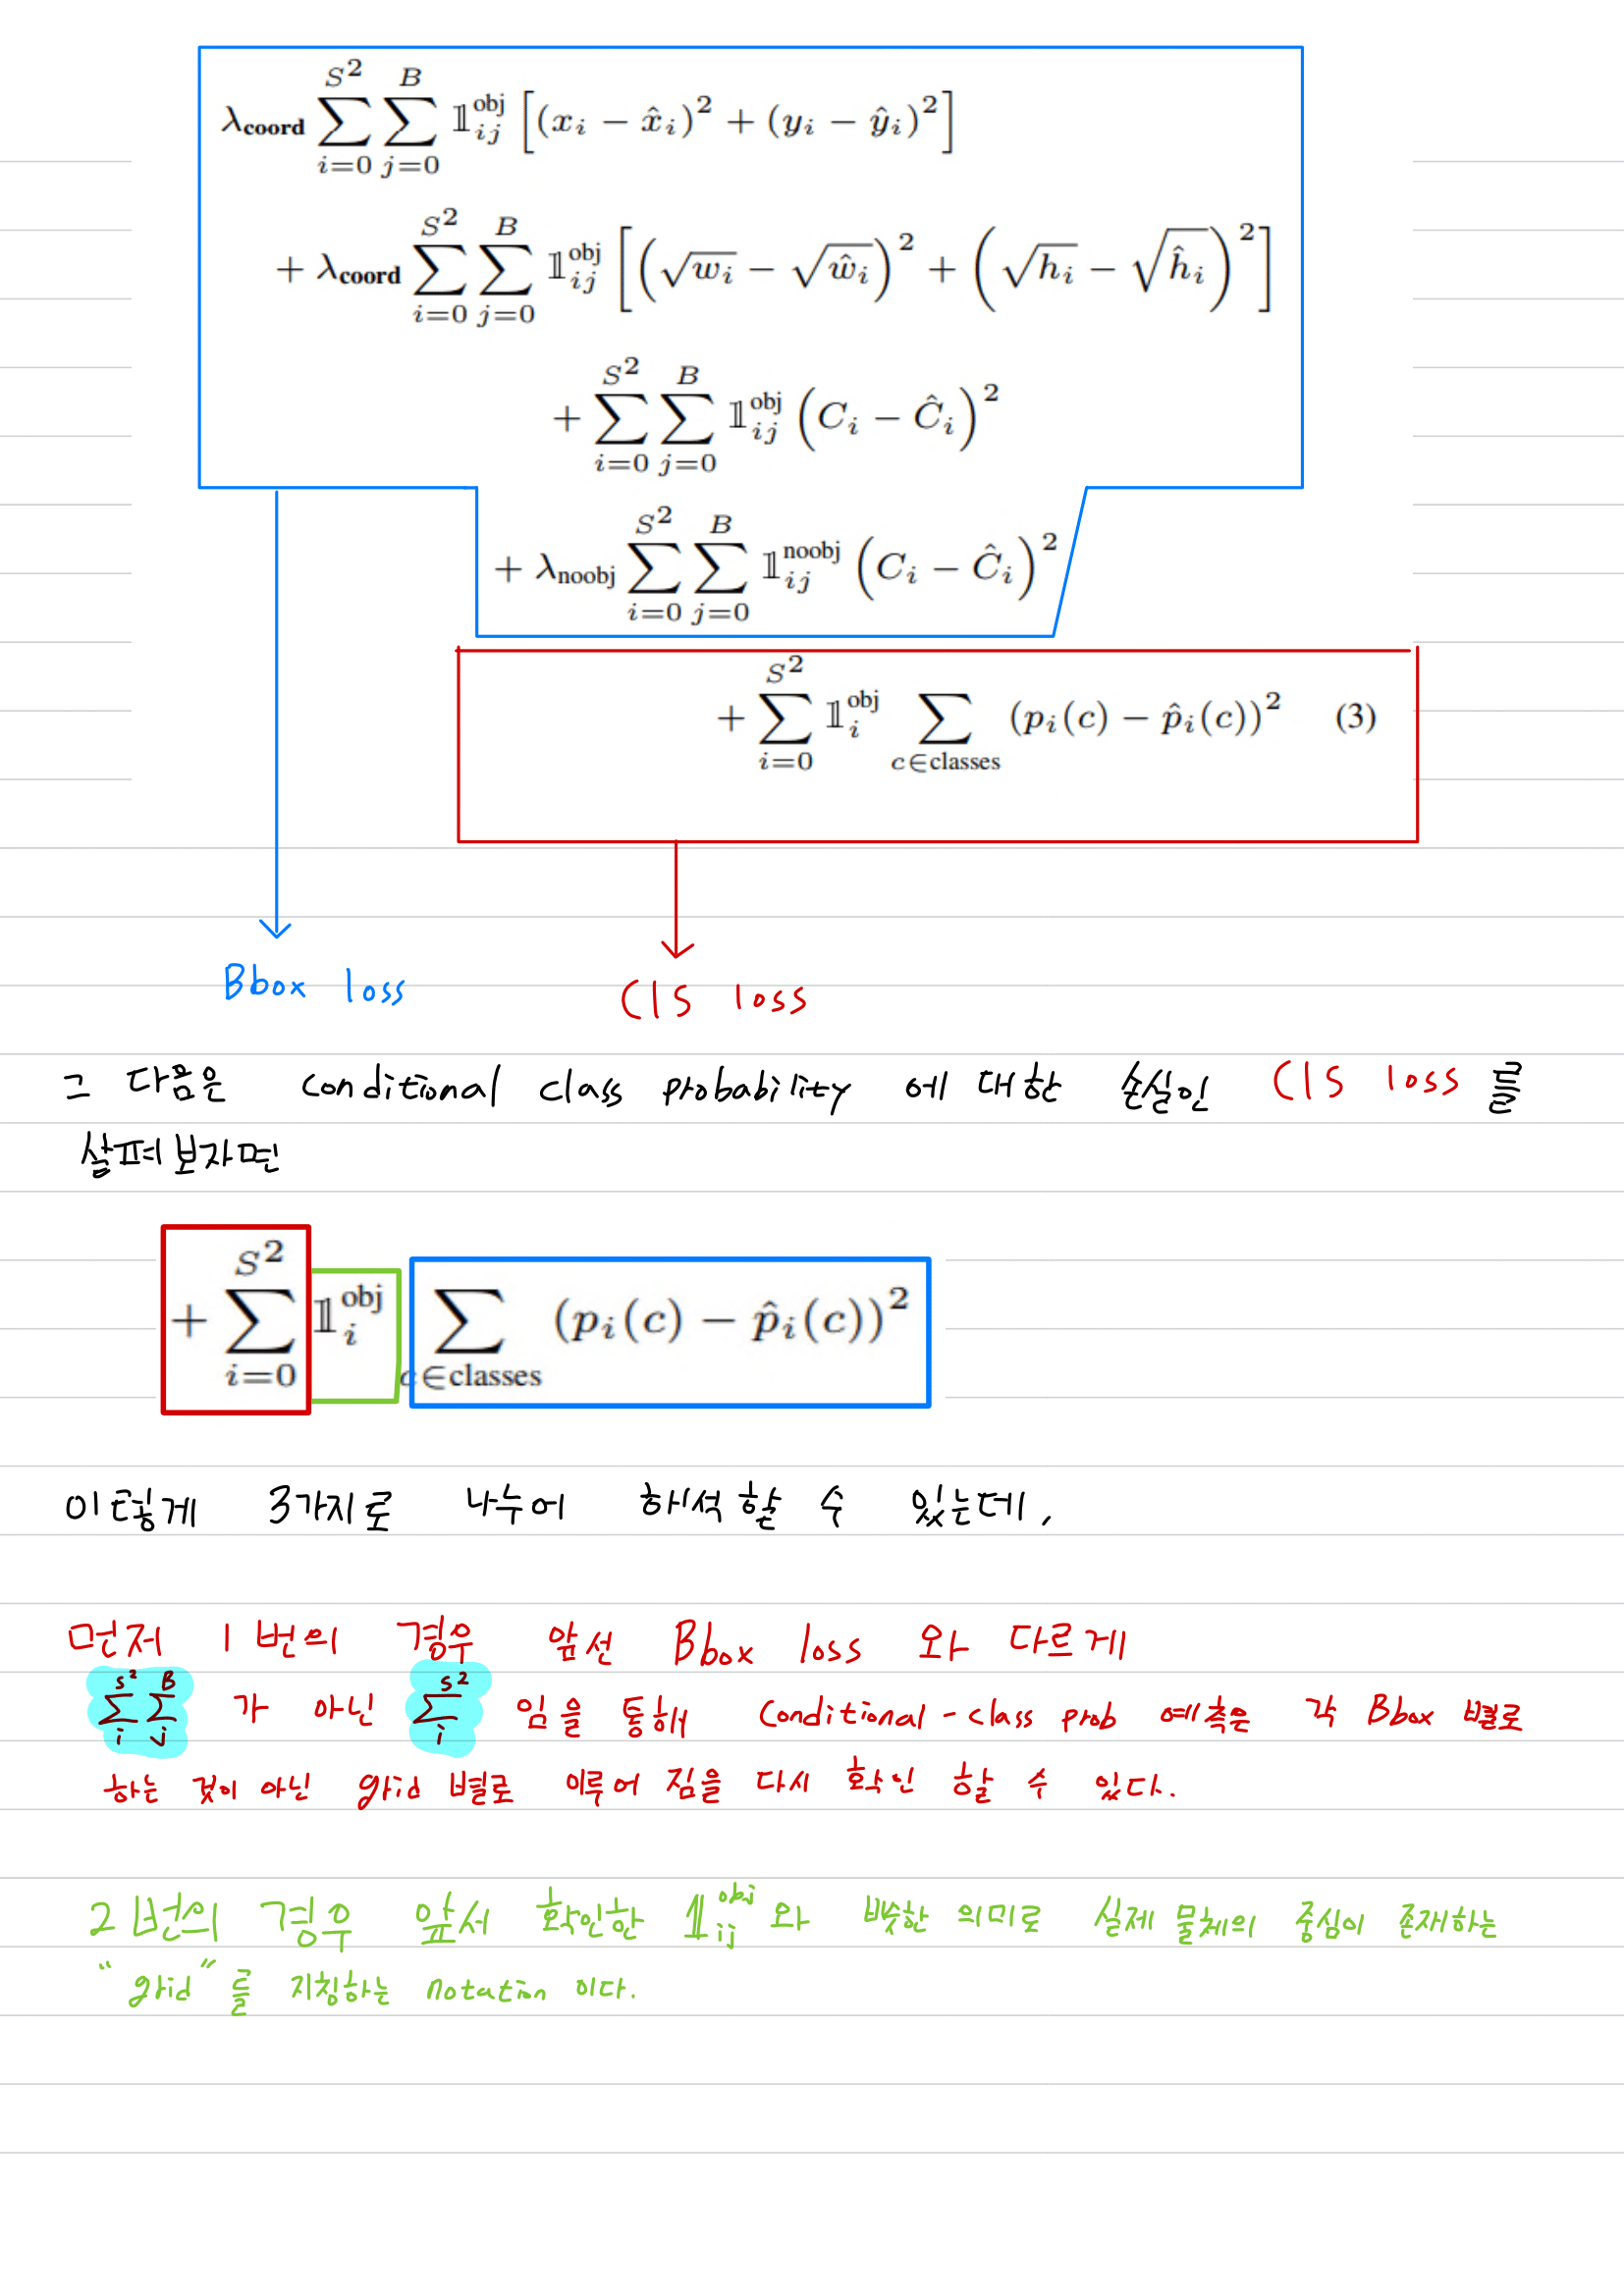 λ_coord ∑_{i=0}^{S^2} ∑_{j=0}^{B} 𝟙_{ij}^{obj} [(x_i − x̂_i)^2 + (y_i − ŷ_i)^2]
+ λ_coord ∑_{i=0}^{S^2} ∑_{j=0}^{B} 𝟙_{ij}^{obj} [(√w_i − √ŵ_i)^2 + (√h_i − √ĥ_i)^2]
+ ∑_{i=0}^{S^2} ∑_{j=0}^{B} 𝟙_{ij}^{obj} (C_i − Ĉ_i)^2
+ λ_noobj ∑_{i=0}^{S^2} ∑_{j=0}^{B} 𝟙_{ij}^{noobj} (C_i − Ĉ_i)^2
+ ∑_{i=0}^{S^2} 𝟙_i^{obj} ∑_{c∈classes} (p_i(c) − p̂_i(c))^2 (3)
Bbox loss
Cls loss
그 다음은 conditional class probability 에 대한 손실인 Cls loss 를
살펴보자면
+ ∑_{i=0}^{S^2} 𝟙_i^{obj} ∑_{c∈classes} (p_i(c) − p̂_i(c))^2
이렇게 3가지로 나누어 해석할 수 있는데,
먼저 1번의 경우 앞선 Bbox loss 와 다르게
∑_i^{S^2} ∑_j^B 가 아닌 ∑_i^{S^2} 임을 통해 Conditional-class prob 예측은 각 Bbox 별로
하는 것이 아닌 grid 별로 이루어 짐을 다시 확인 할 수 있다.
2번의 경우 앞서 확인한 𝟙_{ij}^{obj} 와 비슷한 의미로 실제 물체의 중심이 존재하는
"grid"를 지칭하는 notation 이다.